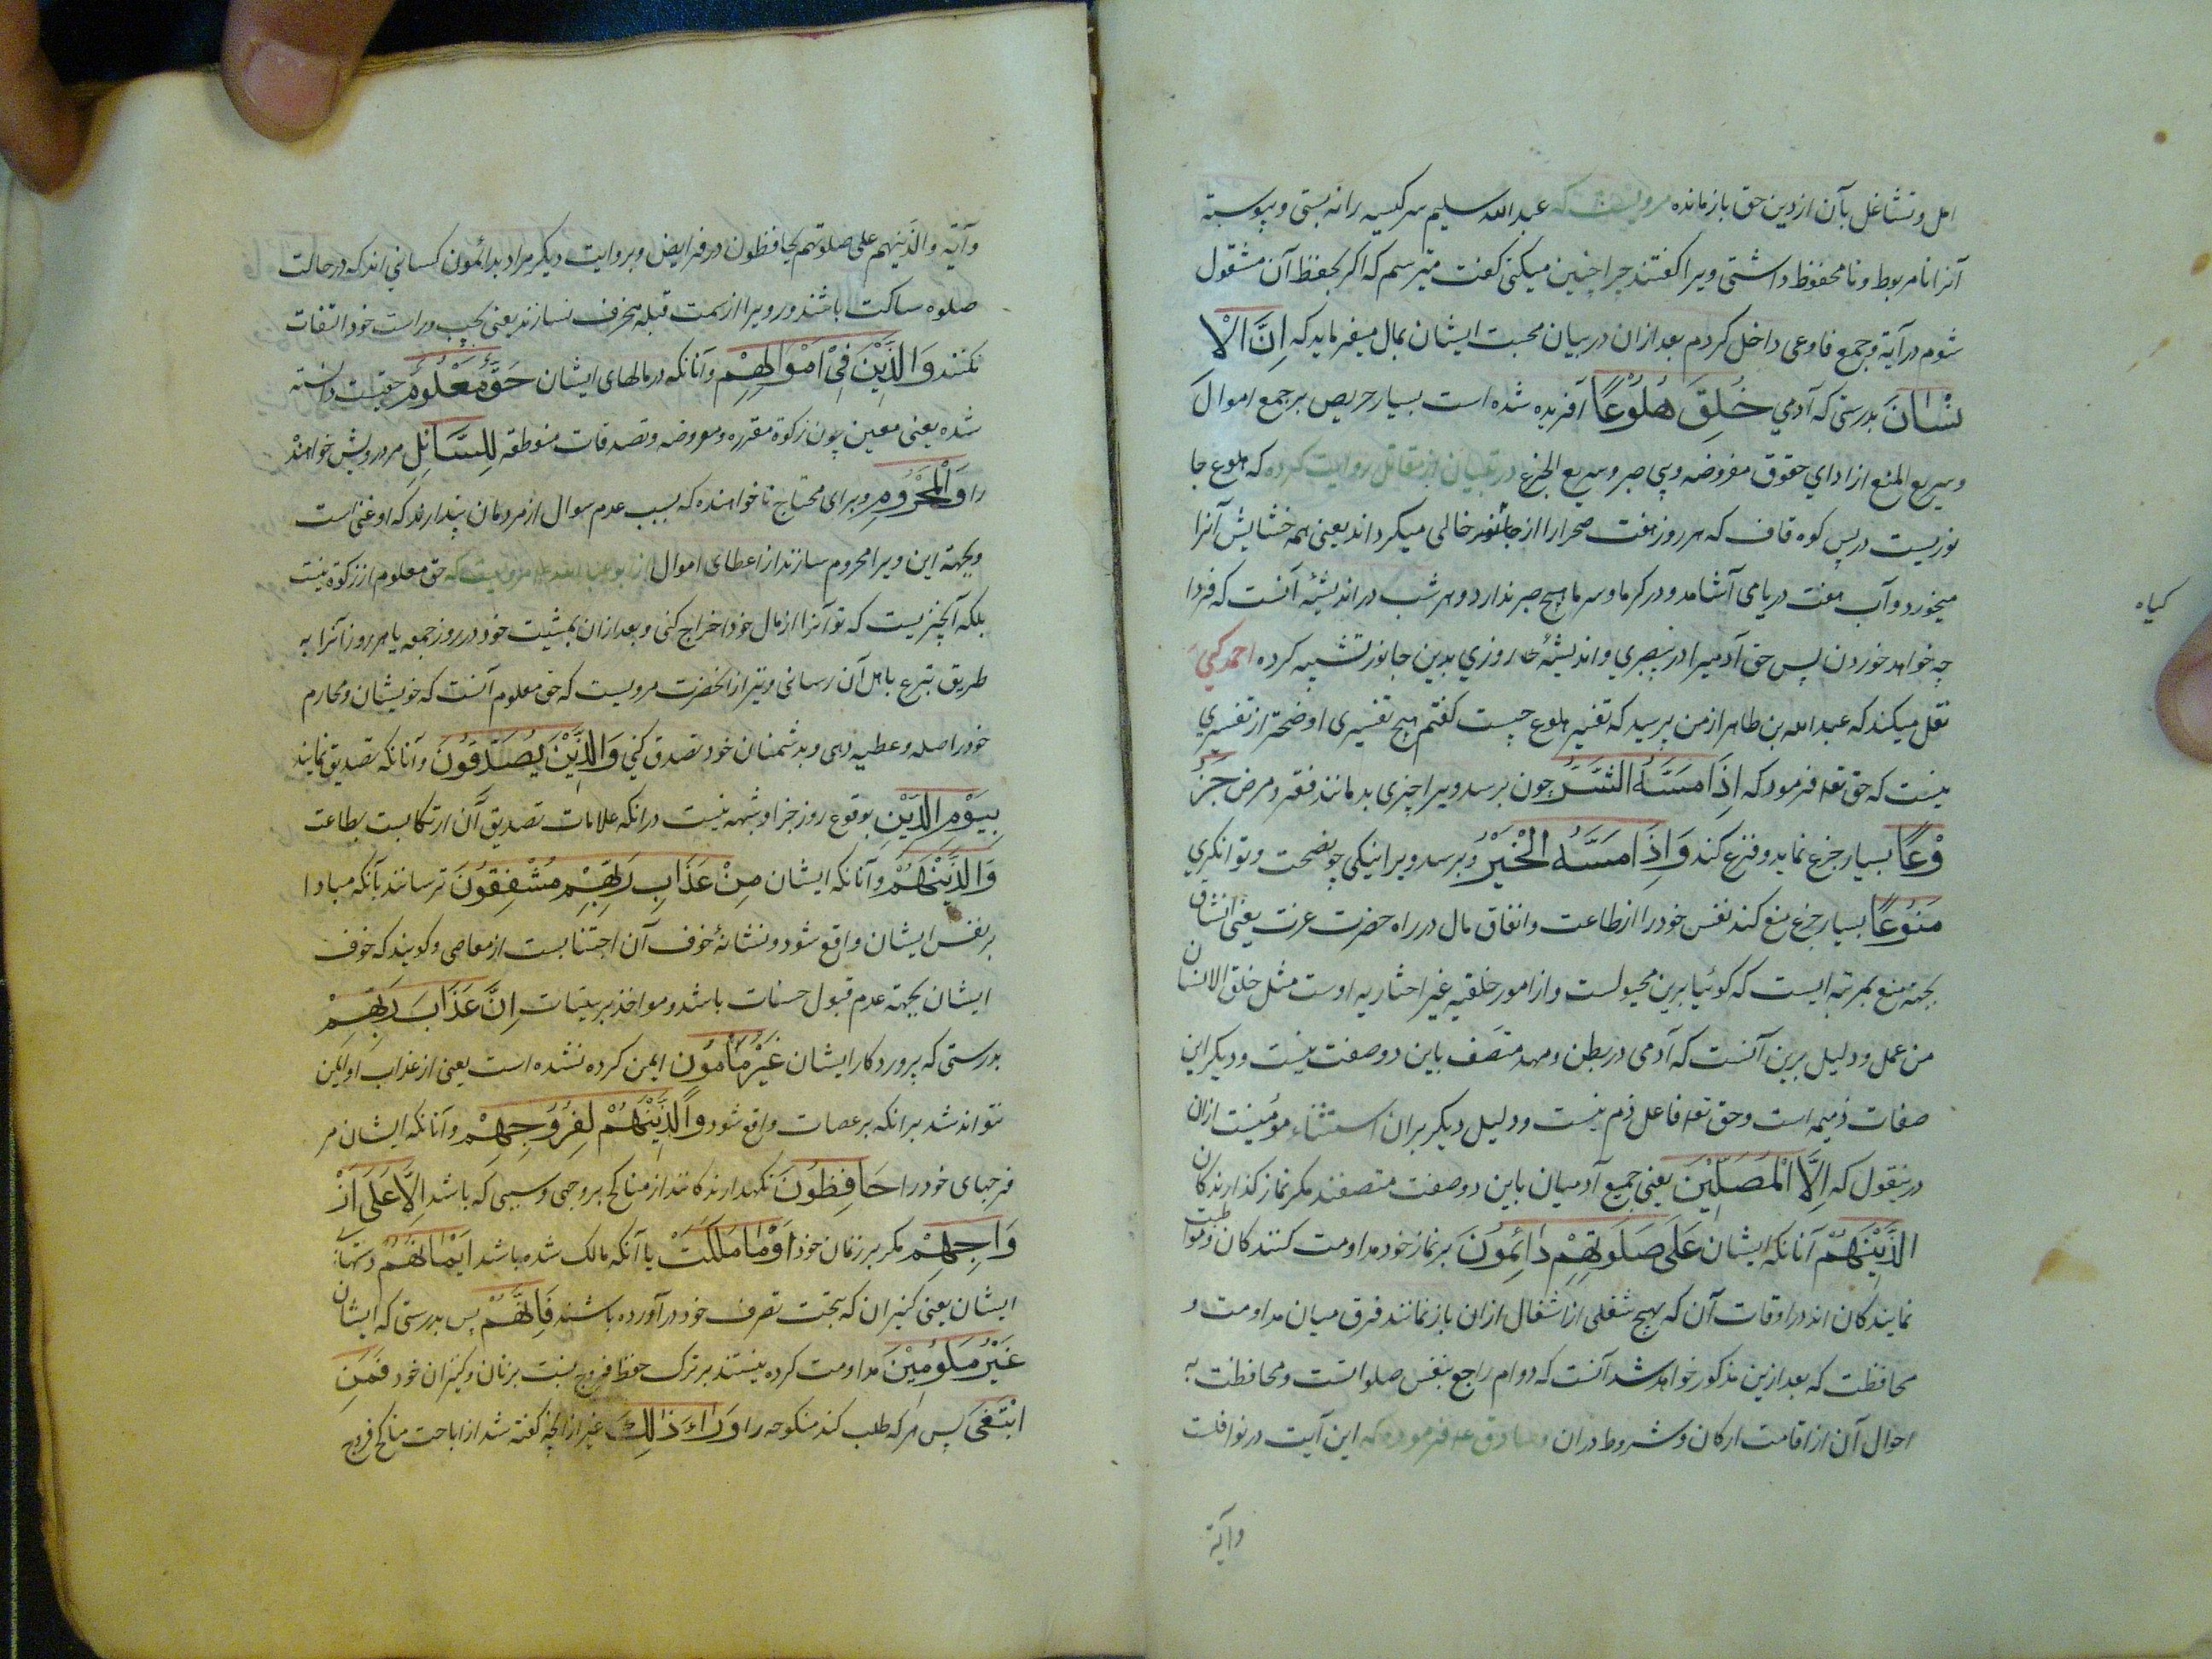 امل و تشاغل بآن از دین حق باز مانده مرویست که عبد الله سلیم سر کیسه را نه بستی و پیوسته
آنرا نا مربوط و نا محفوظ داشتی ویرا گفتند چرا چنین میکنی گفت میترسم که اگر بحفظ آن مشغول
شوم در آیة و جمع فاوعی داخل کردم بعد ازان در بیان محبت ایشان بمال میفرماید که اِنَّ الْاِ
نْسَانَ بدرستی که آدمی خُلِقَ هَلُوْعًا آفریده شده است بسیار حریص بر جمع اموال
و سریع المنع از ادای حقوق مفروضه و بی صبر و سریع الجزع در تبیان از مقاتل روایت کرده که هلوع جا
نوریست در پس کوه قاف که هر روز هفت صحرا را از خالی میکرداند یعنی همه خشایش آنرا
میخورد و آب هفت دریا می آشامد و در کرما و سرما هیچ صبر ندارد و هر شب در اندیشهٔ آنست که فردا
چه خواهد خوردن پس حق آدمیرا در بیصبری و اندیشهٔ روزی بدین جانور تشبیه کرده احمد
نقل میکند که عبد الله بن طاهر از من پرسید که تفسیر هلوع چیست گفتم هیچ تفسیری اوضحتر از تفسیری
نیست که حق تع فرمود که اِذَا مَسَّهُ الشَّرُّ چون برسد ویرا چیزی بد مانند فقر و مرض جَزُ
وْعًا بسیار جزع نماید و فزع کند وَاِذَا مَسَّهُ الْخَيْرُ و برسد ویرا نیکی چو صحت و توانکری
مَنُوْعًا بسیار منع کند نفس خود را از طاعت و انفاق مال در راه حضرت عزت یعنی
بجهة منع بمرتبه ایست که کوئیا برین مجبولست و از امور خلقیه غیر اوست مثل خلق الانسان
من عجل و دلیل برین آنست که آدمی در بطن و مهد متصف باین دو صفت نیست و دیکر این
صفات ذمیمه است و حق تع فاعل ذم نیست و دلیل دیکر بران استثناء مؤمنینست ازان
درینقول که اِلَّا الْمُصَلِّيْنَ یعنی جمیع آدمیان باین دو صفت متصفند مکر نماز کذارندکان
الَّذِيْنَهُمْ آنانکه ایشان عَلَى صَلَوتِهِمْ دَائِمُونَ بر نماز خود مداومت کنندکان و مواظبت
نمایندکان اند در اوقات آن که بهیچ شغلی از اشغال ازان باز نمانند فرق میان مداومت و
محافظت که بعد ازین مذکور خواهد شد آنست که دوام راجع بنفس صلواتست و محافظت به
احوال آن از اقامت ارکان و شروط دران و صادق ع فرموده که این آیت در نوافلست
وآیة
کیاه
وآیة والذینهم علی صلوتهم یحافظون در فرایض و بروایت دیکر مراد بدائمون کسانی اند که در حالت
صلوه ساکت باشند و رو یرا از سمت قبله منحرف نسازند یعنی بچپ و راست خود التفات
نکنند وَالَّذِيْنَ فِيْ اَمْوَالِهِمْ و آنانکه در مالهای ایشان حَقٌّ مَعْلُومٌ حقیست دانسته
شده یعنی معین چون زکوة مقرره و مفروضه و تصدقات منوطقه لِلسَّائِلِ مر درویش خواهند
را وَالْمَحْرُومِ و برای محتاج ناخواهنده که بسبب عدم سوال از مردمان پندارند که او غنی است
و بجهة این ویرا محروم سازند از اعطای اموال از ابو عبد الله ع مرویست که حق معلوم از زکوة نیست
بلکه آنچیزیست که تو آنرا از مال خود اخراج کنی و بعد ازان بمشیت خود در روز جمعه یا هر روز آنرا به
طریق تبرع باهل آن رسانی و نیز از انحضرت مرویست که حق معلوم آنست که خویشان و محارم
خود را صله و عطیه دهی و بدشمنان خود تصدق کنی وَالَّذِيْنَ يُصَدِّقُوْنَ و آنانکه تصدیق نمایند
بِيَوْمِ الدِّيْنِ بوقوع روز جزا و شبهه نیست در انکه علامات تصدیق آن ارتکابست بطاعت
وَالَّذِيْنَهُمْ و آنانکه ایشان مِنْ عَذَابِ رَبِّهِمْ مُشْفِقُوْنَ ترسانند بآنکه مبادا
بر نفس ایشان واقع شود و نشانهٔ خوف آن اجتنابست از معاصی و کویند که خوف
ایشان بجهة عدم قبول حسنات باشد و مواخذ بر سیئات اِنَّ عَذَابَ رَبِّهِمْ
بدرستی که پروردکار ایشان غَيْرُ مَأْمُوْن ایمن کرده نشده است یعنی از عذاب او ایمن
نتواند شد بر انکه بر عصات واقع شود وَالَّذِيْنَهُمْ لِفُرُوْجِهِمْ و آنانکه ایشان مر
فرجهای خود را حَافِظُوْنَ نکهدارندکانند از مناکح بر وجهی و سببی که باشد اِلَّا عَلَى اَزْ
وَاجِهِمْ مکر بر زنان خود اَوْ مَا مَلَكَتْ یا آنکه مالک شده باشد اَيْمَانُهُمْ دستهای
ایشان یعنی کنیزان که بتحت تصرف خود در آورده باشند فَاِنَّهُمْ پس بدرستی که ایشان
غَيْرُ مَلُوْمِيْنَ مداومت کرده نیستند بر ترک حفظ فروج نسبت بزنان و کنیزان خود فَمَنِ
ابْتَغَى پس هر که طلب کند منکوحه را وَرَاءَ ذٰلِكَ غیر از انچه گفته شد از اباحت مناکح فروج